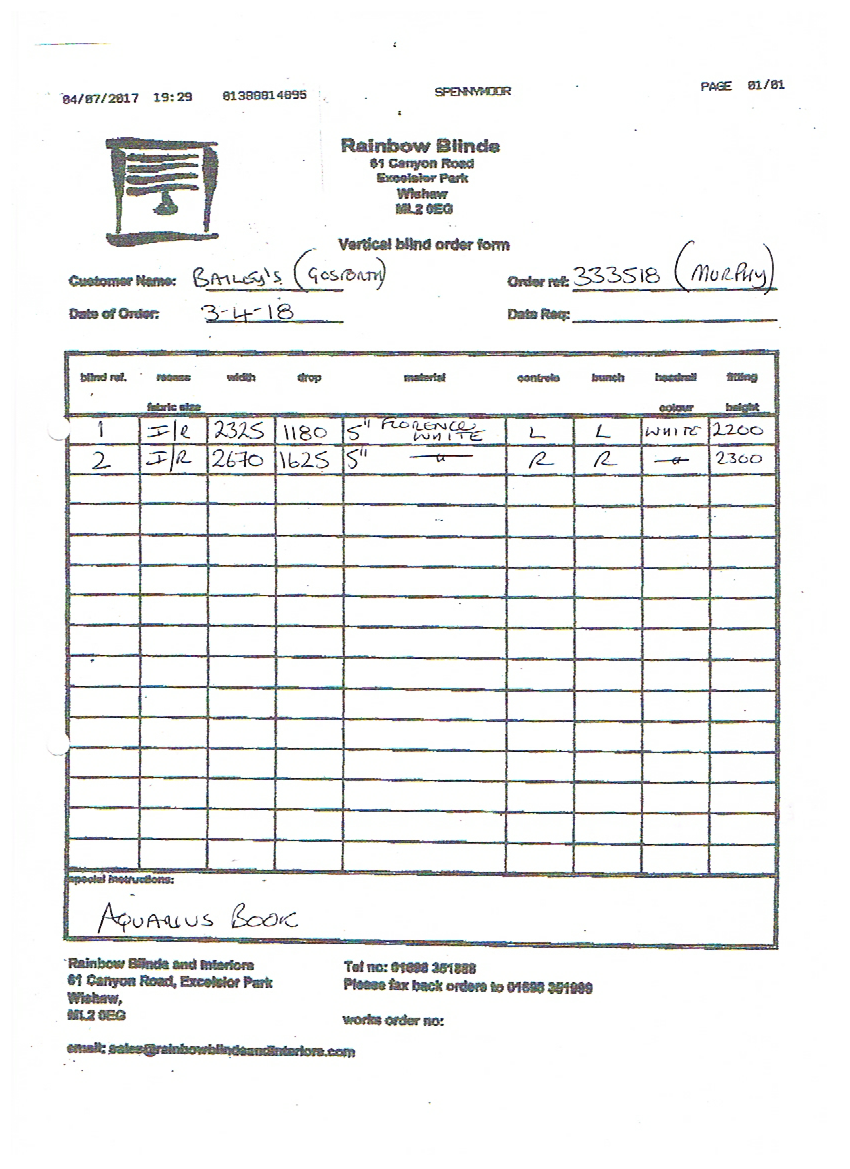 04/07/2017 19:29 01388814895 SPENNYMOOR PAGE 01/01
Rainbow Blinds
61 Canyon Road
Excelsior Park
Wishaw
ML2 0EG
Vertical blind order form
Customer Name: BAILEY'S (GOSFORTH) Order ref: 333518 (MURPHY)
Date of Order: 3-4-18 Date Req:
blind ref. recess width drop material controls bunch headrail fitting
fabric size colour height
1 I/R 2325 1180 5" FLORENCE WHITE L L WHITE 2200
2 I/R 2670 1625 5" —"— R R —"— 2300
special instructions:
AQUARIUS BOOK
Rainbow Blinds and Interiors Tel no: 01698
61 Canyon Road, Excelsior Park Please fax back orders to 01698
Wishaw,
ML2 0EG works order no:
email: sales@rainbowblindsandinteriors.com